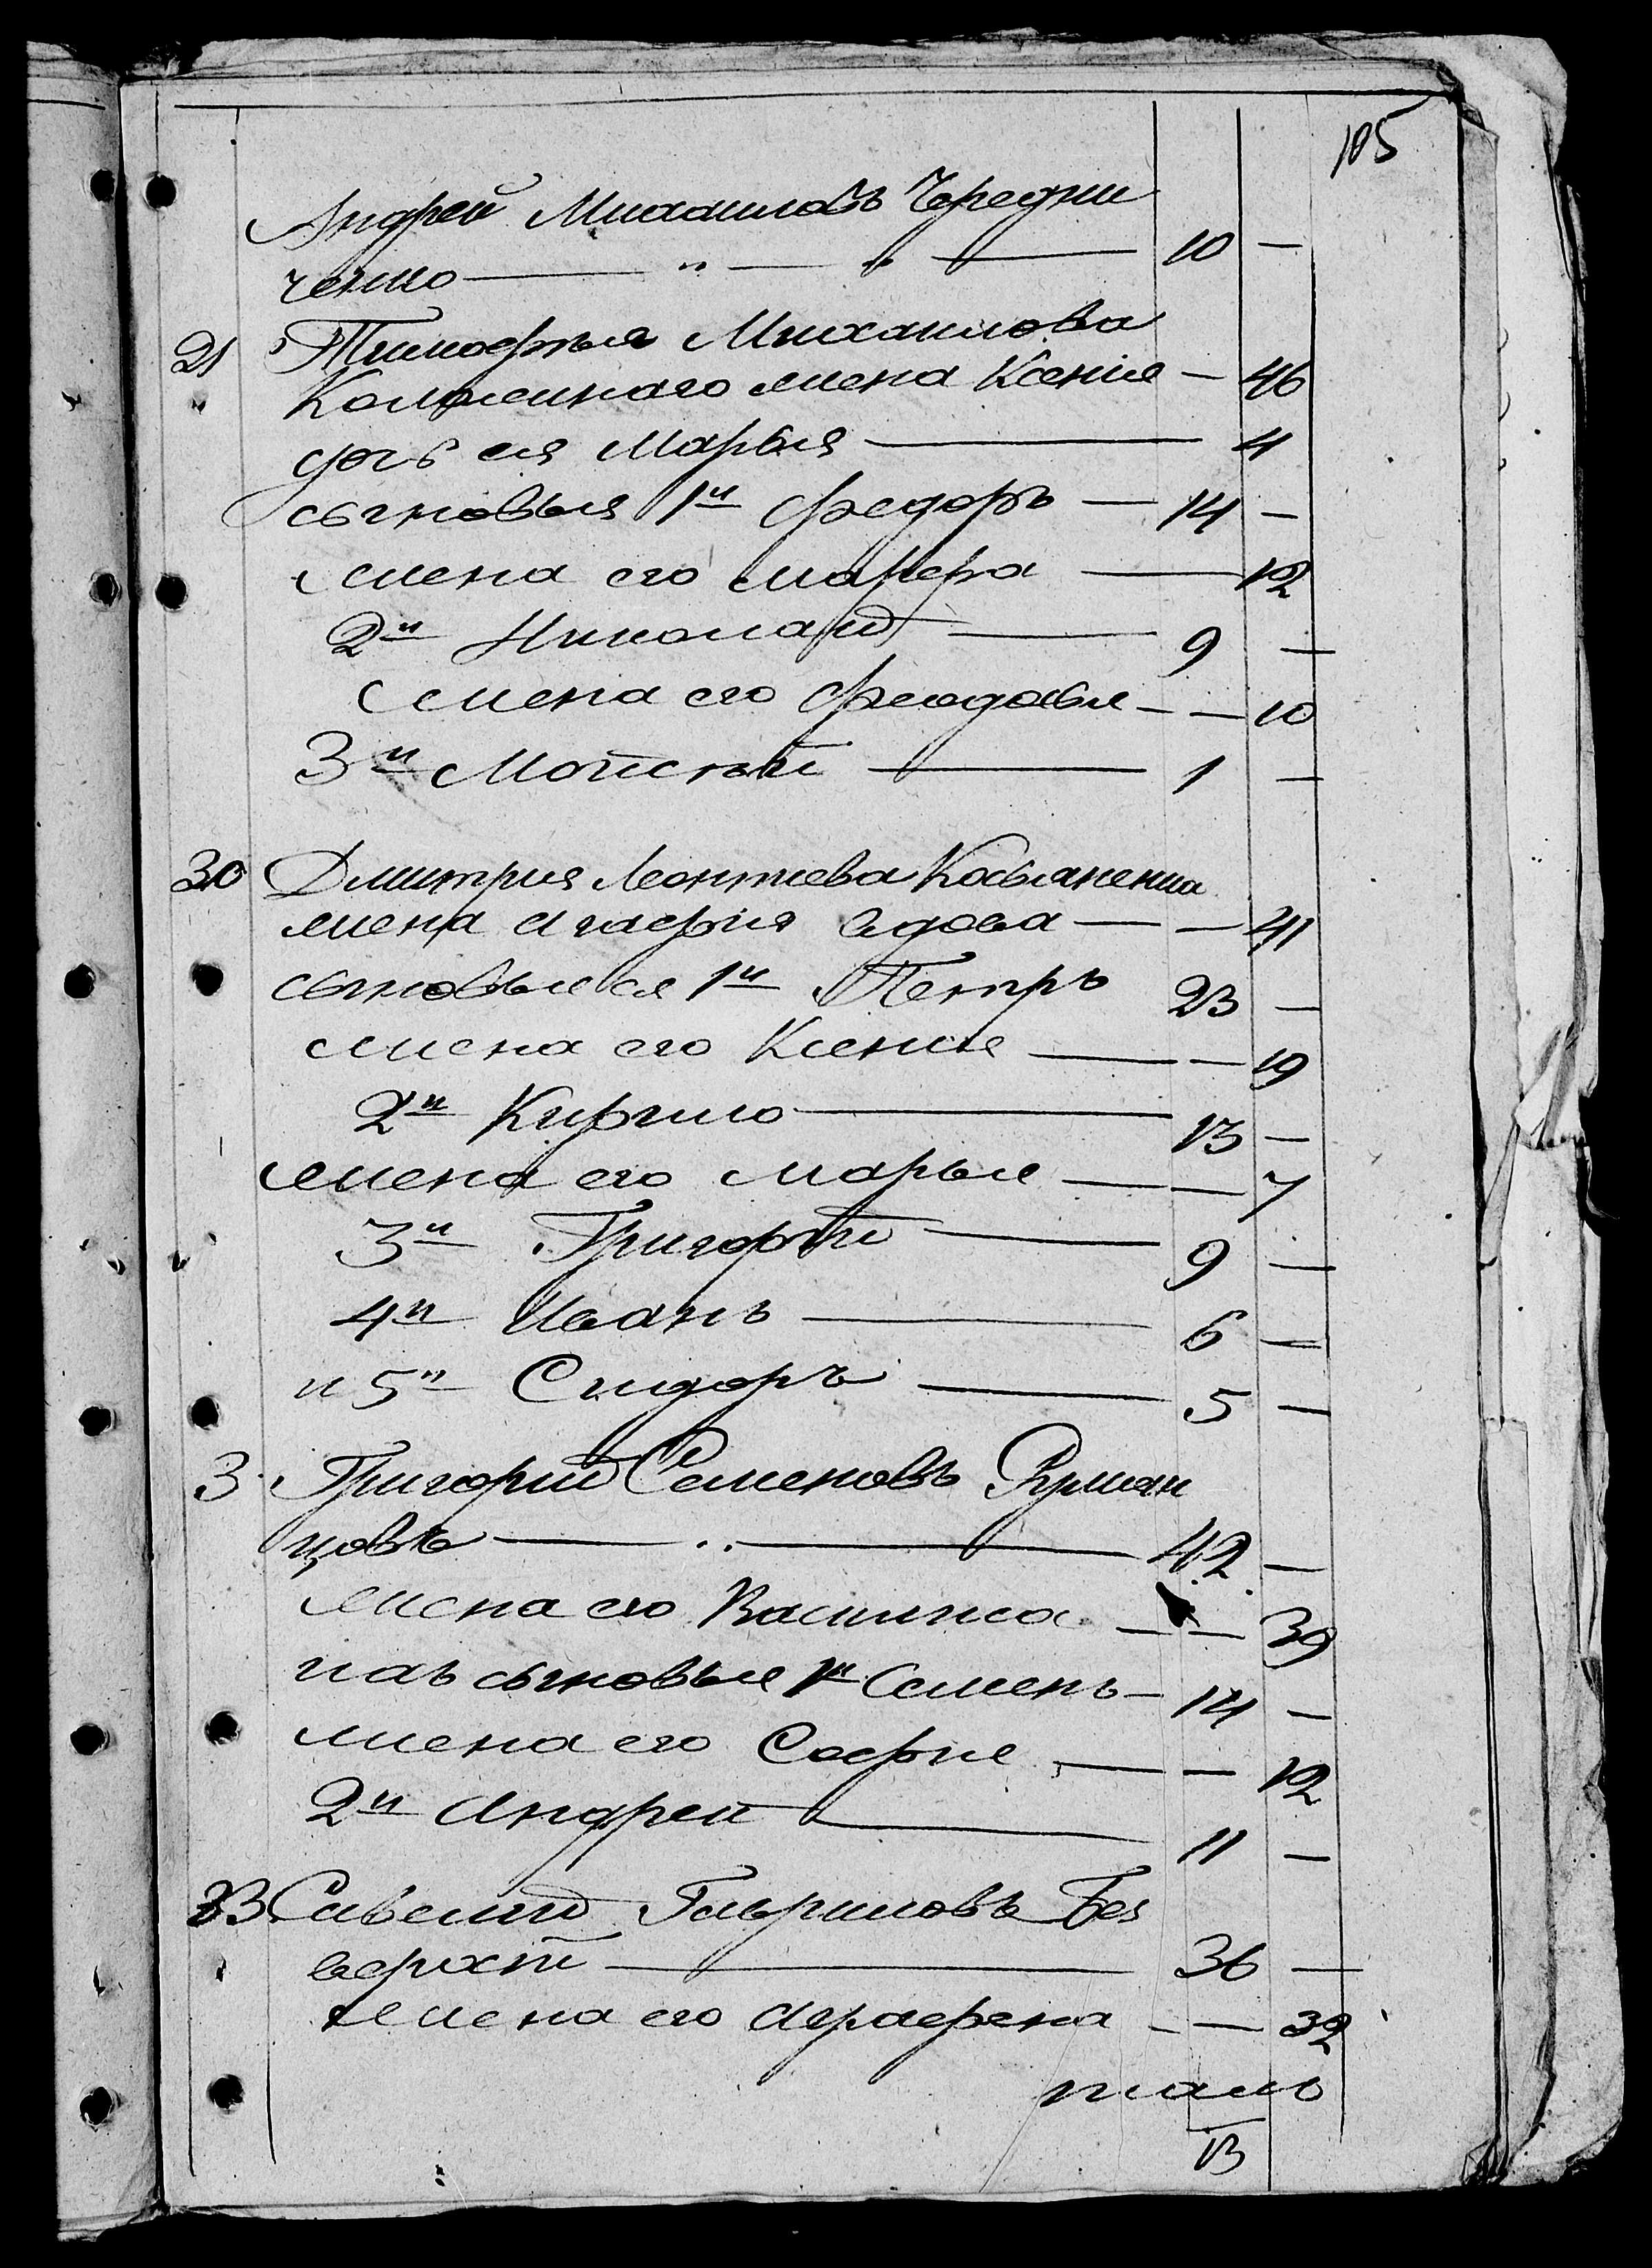 105
Андрей Михаиловъ Чередни
ченко — " — " — 10 —
21 Тимофѣя Михаилова
жена Ксенія — 46
дочь ея Марья — 4
сыновья 1й Федоръ — 14 —
жена его — 12
2й Николай — 9 —
жена его Феодосья — — 10
3й Мойсѣй — 1 —
30 Дмитрия Леонтиева Касьяненка
жена Агафия вдова — — 41
сыновья ея 1й Петръ 23 —
жена его Ксения — — 19
2й Кирило — 13 —
жена его Марья — — 7
3й Григорій — 9 —
4й Иванъ — 6 —
и 5й Сидоръ — 5 —
3 Григорий Семеновъ Румян
цовъ — .. — 42 —
жена его Василиса — — 39
ихъ сыновья 1й Семенъ — 14 —
жена его Софие — — 12
2й Андрей — 11 —
33 Савелий Гавриловъ Без
верхій — 36 —
жена его Аграфена — — 32
13